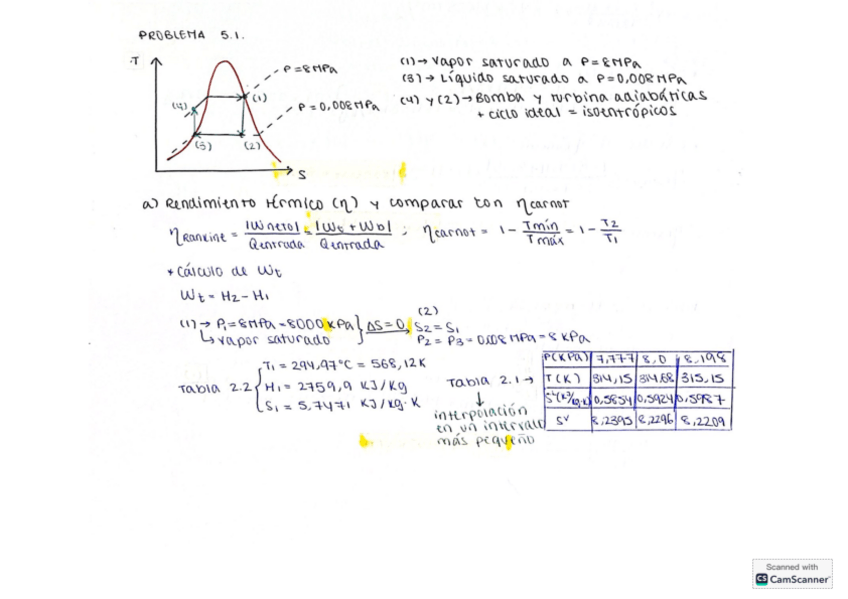 PROBLEMA 5.1.
T
P=8MPa
(1)
(4)
P=0,008MPa
(3)
(2)
S
(1)→ Vapor saturado a P=8MPa
(3)→ Líquido saturado a P=0,008MPa
(4) y (2)→ Bomba y turbina adiabáticas
+ ciclo ideal = isoentrópicos
a) Rendimiento térmico (η) y comparar con ηcarnot
ηRankine = |Wneto|/Qentrada = |Wt + Wb|/Qentrada ; ηcarnot = 1 - Tmín/Tmáx = 1 - T2/T1
* Cálculo de Wt
Wt = H2 - H1
(1)→ P1=8MPa=8000 kPa } ΔS=0 →
↳ vapor saturado
(2)
S2 = S1
P2 = P3 = 0,008 MPa = 8 kPa
Tabla 2.2 {
T1 = 294,97°C = 568,12K
H1 = 2759,9 KJ/Kg
S1 = 5,7471 KJ/kg·K
Tabla 2.1 →
↓
interpolación
en un intervalo
más pequeño
P(KPa) 7,777 8,0 8,198
T(K) 314,15 314,68 315,15
S^L(KJ/kg·K) 0,5854 0,5924 0,5987
S^V 8,2395 8,2296 8,2209
Scanned with
CS CamScanner